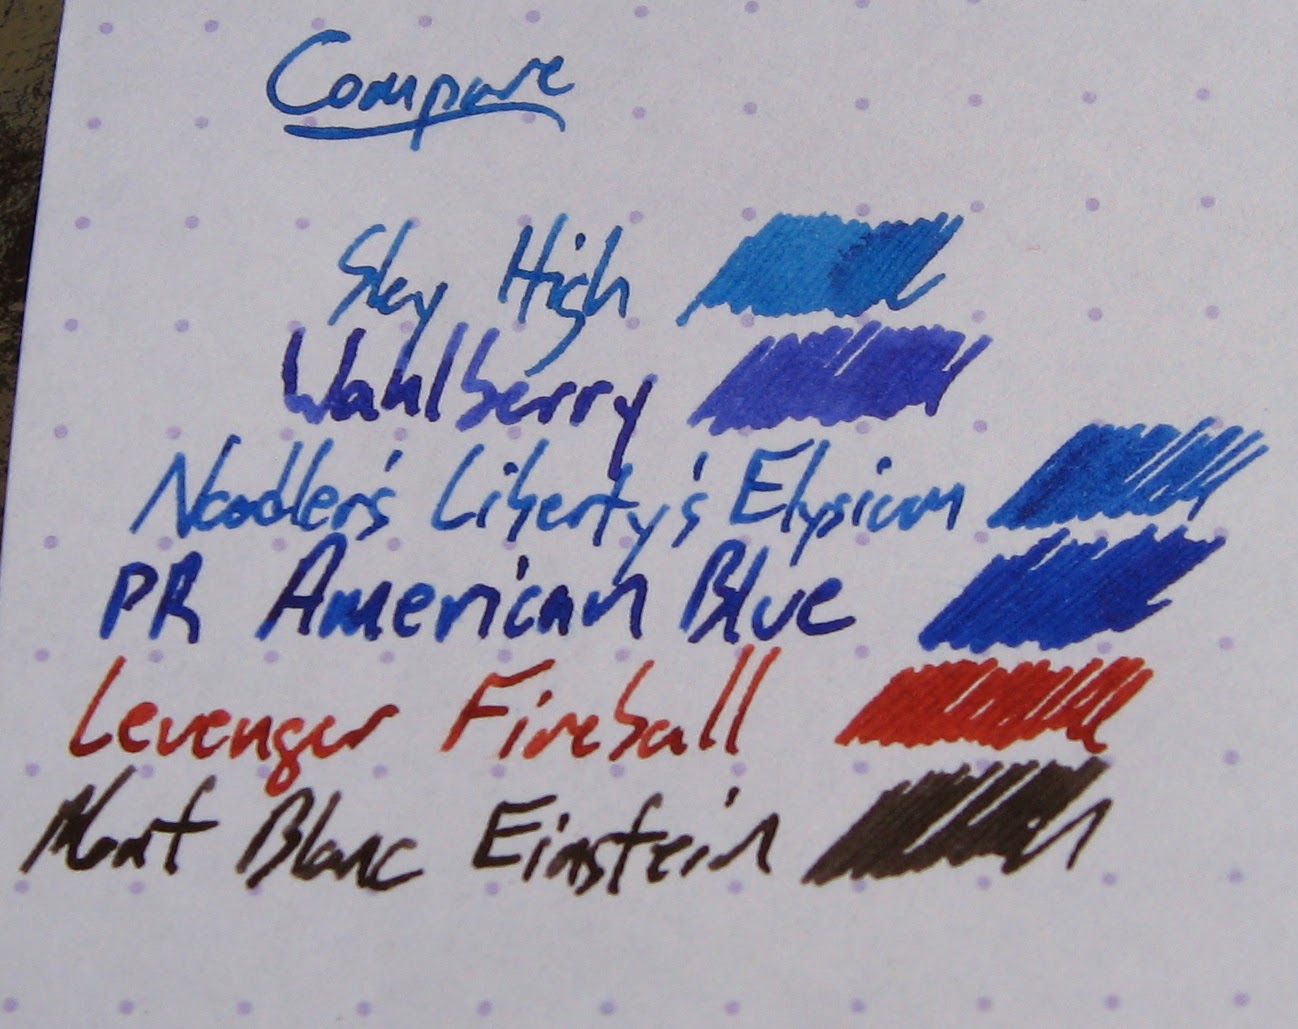 Compare
Sky High
Wahlberry
Noodler's Liberty's Elysium
PR American Blue
Levenger Fireball
Mont Blanc Einstein